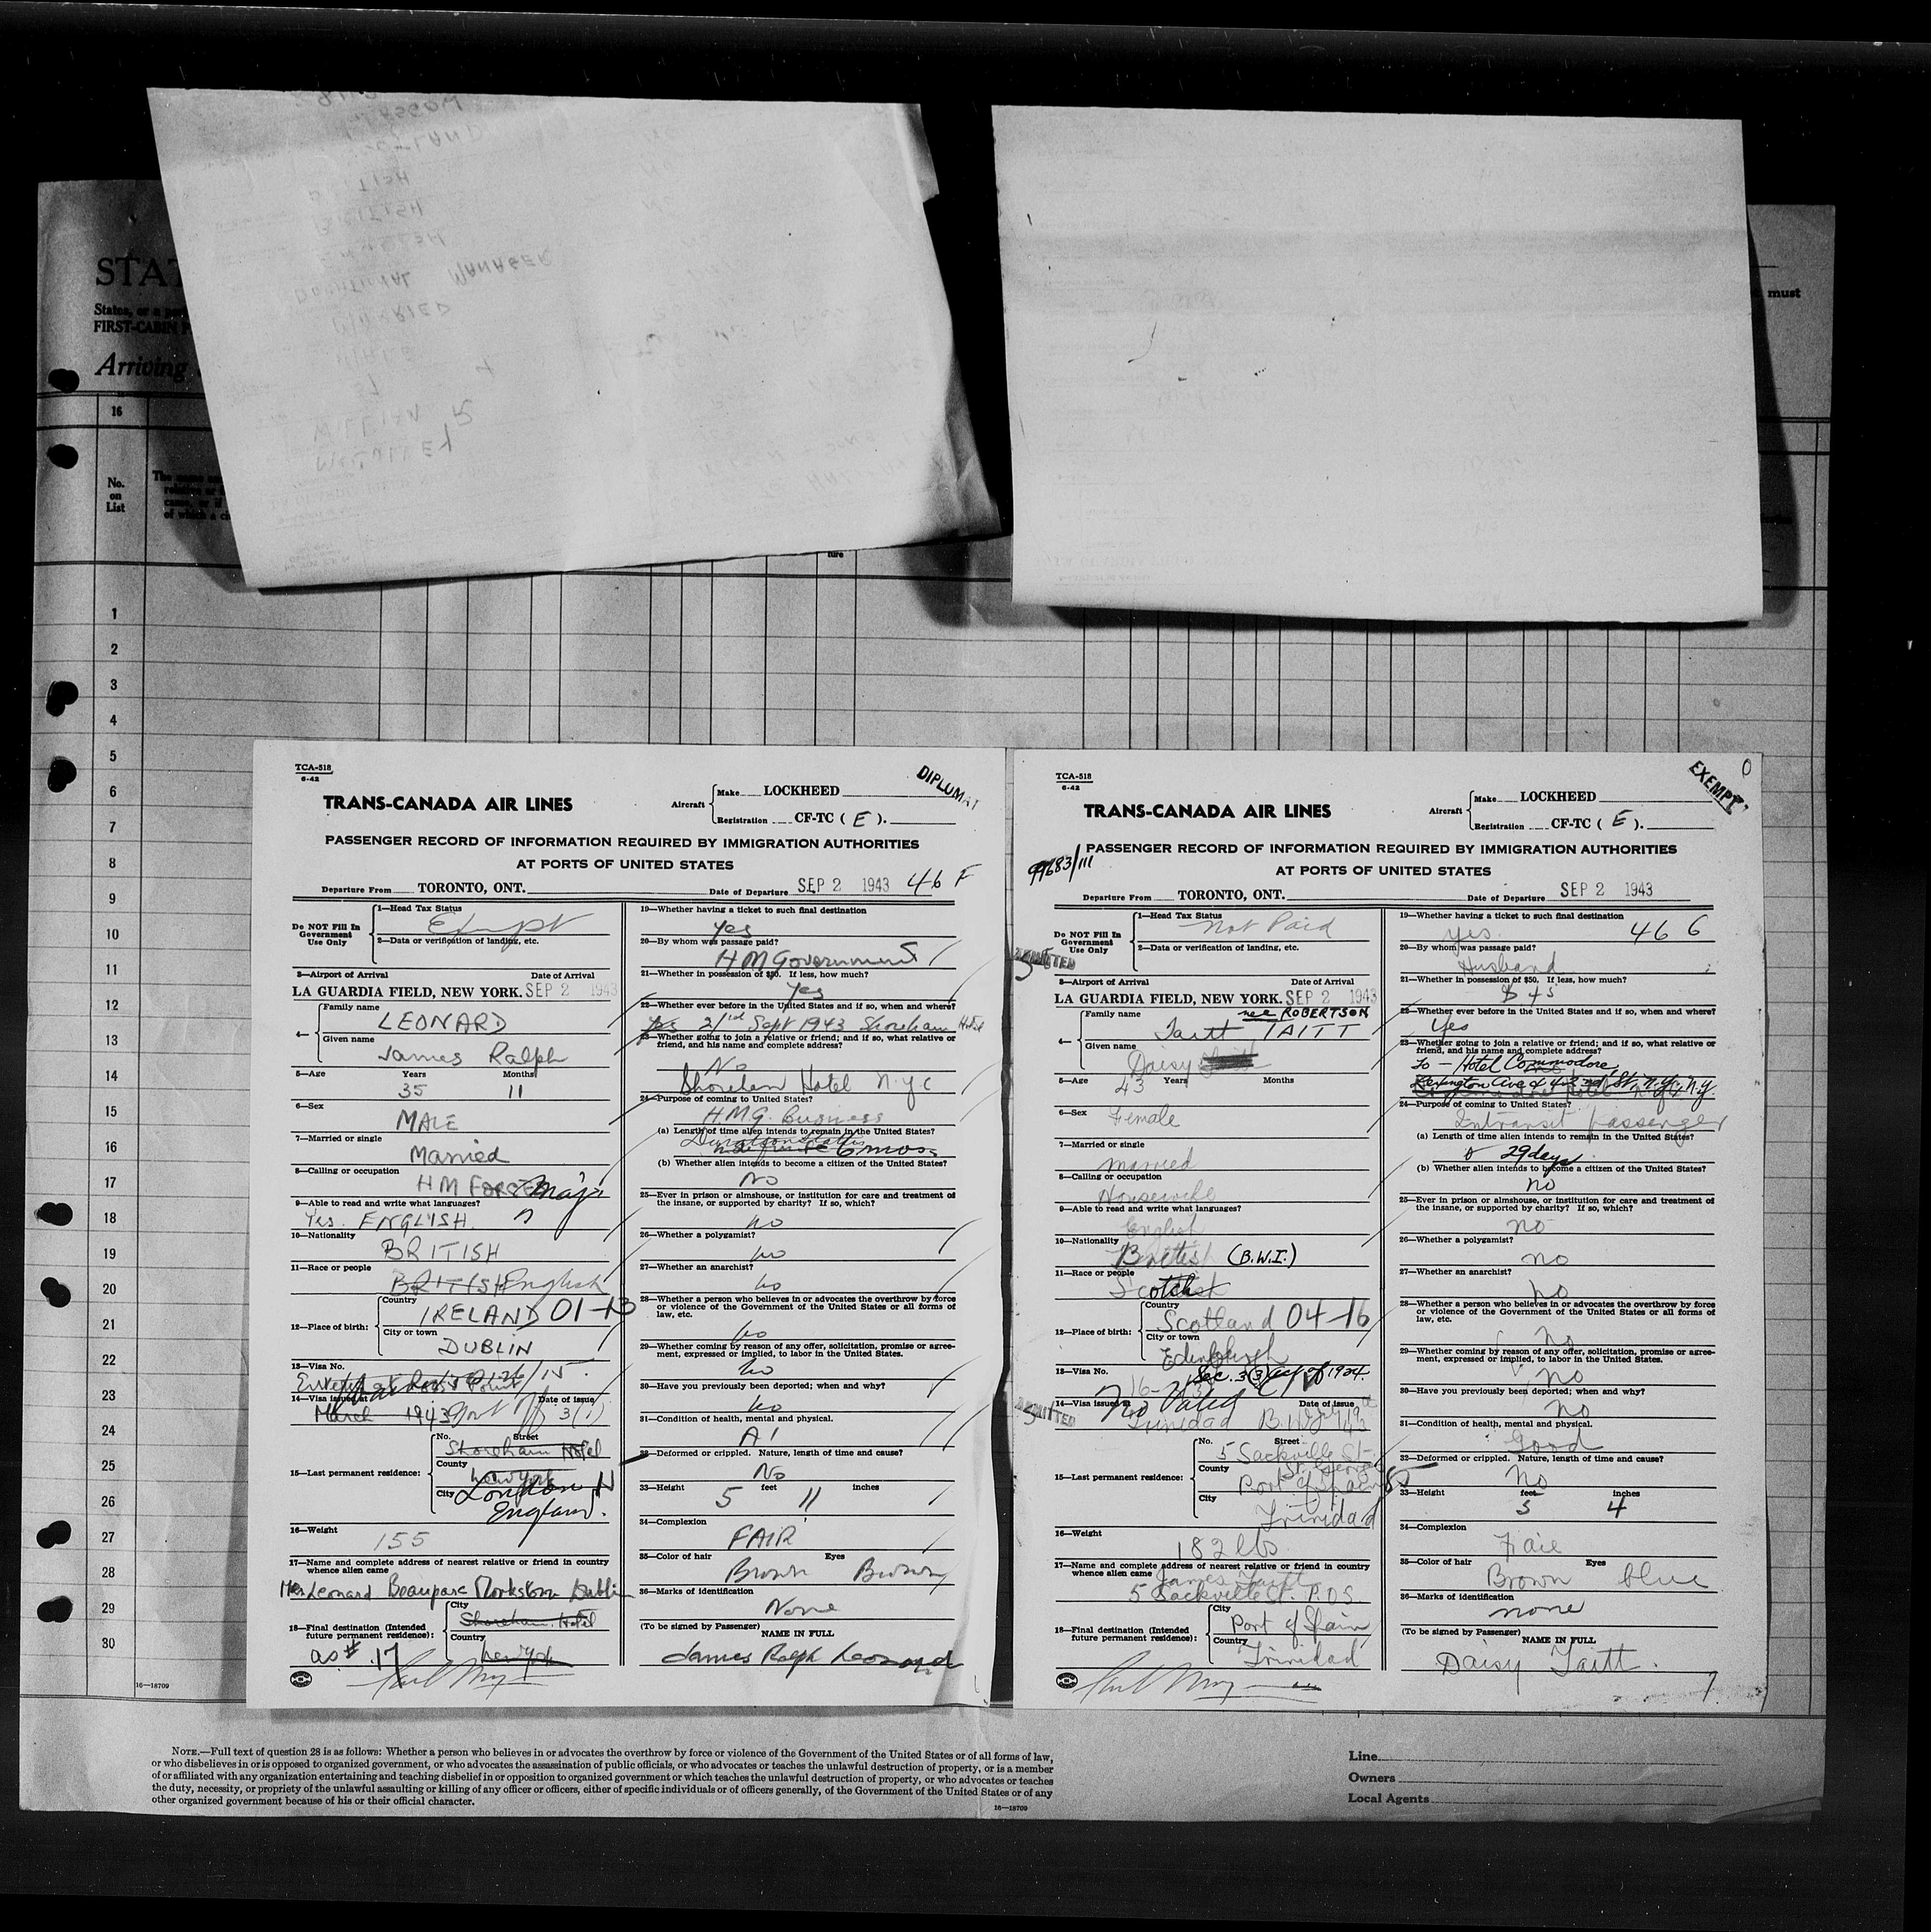 STAT
States, or a
FIRST-CABIN
Arriving
must
16
No.
on
List
ture
1
2
3
4
5
6
7
8
9
10
11
12
13
14
15
16
17
18
19
20
21
22
23
24
25
26
27
28
29
30
16—18709
TCA-518
6-42
DIPLOMAT
TRANS-CANADA AIR LINES
Aircraft
Make LOCKHEED
Registration CF-TC ( E ).
PASSENGER RECORD OF INFORMATION REQUIRED BY IMMIGRATION AUTHORITIES
AT PORTS OF UNITED STATES
Departure From TORONTO, ONT. Date of Departure SEP 2 1943 46 F
Do NOT Fill In
Government
Use Only
1—Head Tax Status
Exempt
2—Data or verification of landing, etc.
3—Airport of Arrival Date of Arrival
LA GUARDIA FIELD, NEW YORK. SEP 2 1943
4—
Family name
LEONARD
Given name
James Ralph
5—Age Years Months
35 11
6—Sex
MALE
7—Married or single
Married
8—Calling or occupation
HM FORCES Major
9—Able to read and write what languages?
Yes. ENGLISH
10—Nationality
BRITISH
11—Race or people
BRITISH English
12—Place of birth:
Country
IRELAND 01-13
City or town
DUBLIN
13—Visa No.
14—Visa issued at Date of issue
March 1943 3(1)
15—Last permanent residence:
No. Street
Shoreham Hotel
County
New York
City London
England.
16—Weight
155
17—Name and complete address of nearest relative or friend in country
whence alien came
Mrs Leonard Beauparc Monkstown Dublin
18—Final destination (Intended
future permanent residence):
City
Shoreham Hotel
Country
New York
as # 17
19—Whether having a ticket to such final destination
Yes
20—By whom was passage paid?
HM Government
21—Whether in possession of $50. If less, how much?
Yes
22—Whether ever before in the United States and if so, when and where?
Yes Sept 1943 Shoreham Hotel
23—Whether going to join a relative or friend; and if so, what relative or
friend, and his name and complete address?
No
Shoreham Hotel N.Y.C
24—Purpose of coming to United States?
H.M.G. Business
(a) Length of time alien intends to remain in the United States?
indefinite 6 mos.
(b) Whether alien intends to become a citizen of the United States?
No
25—Ever in prison or almshouse, or institution for care and treatment of
the insane, or supported by charity? If so, which?
No
26—Whether a polygamist?
No
27—Whether an anarchist?
No
28—Whether a person who believes in or advocates the overthrow by force
or violence of the Government of the United States or all forms of
law, etc.
No
29—Whether coming by reason of any offer, solicitation, promise or agree-
ment, expressed or implied, to labor in the United States.
No
30—Have you previously been deported; when and why?
No
31—Condition of health, mental and physical.
A1
32—Deformed or crippled. Nature, length of time and cause?
No
33—Height feet inches
5 11
34—Complexion
FAIR
35—Color of hair Eyes
Brown Brown
36—Marks of identification
None
(To be signed by Passenger) NAME IN FULL
James Ralph Leonard
TCA-518
6-42
EXEMPT
TRANS-CANADA AIR LINES
Aircraft
Make LOCKHEED
Registration CF-TC ( E ).
99683/111
PASSENGER RECORD OF INFORMATION REQUIRED BY IMMIGRATION AUTHORITIES
AT PORTS OF UNITED STATES
Departure From TORONTO, ONT. Date of Departure SEP 2 1943
Do NOT Fill In
Government
Use Only
1—Head Tax Status
Not Paid
2—Data or verification of landing, etc.
ADMITTED
3—Airport of Arrival Date of Arrival
LA GUARDIA FIELD, NEW YORK. SEP 2 1943
4—
Family name nee ROBERTSON
Taitt TAITT
Given name
Daisy
5—Age Years Months
43
6—Sex
Female
7—Married or single
Married
8—Calling or occupation
Housewife
9—Able to read and write what languages?
English
10—Nationality
British (B.W.I.)
11—Race or people
Scotch
12—Place of birth:
Country
Scotland 04-16
City or town
Edinburgh
13—Visa No.
Sec. 3(3) Act of 1924.
14—Visa issued at Date of issue
Trinidad B.W.I.
ADMITTED
15—Last permanent residence:
No. Street
5 Sackville St.
County
Port of Spain
City
Trinidad
16—Weight
182 lbs
17—Name and complete address of nearest relative or friend in country
whence alien came
James Taitt
5 Sackville St. P.O.S
18—Final destination (Intended
future permanent residence):
City
Port of Spain
Country
Trinidad
19—Whether having a ticket to such final destination
Yes 46 6
20—By whom was passage paid?
Husband
21—Whether in possession of $50. If less, how much?
$ 45
22—Whether ever before in the United States and if so, when and where?
Yes
23—Whether going to join a relative or friend; and if so, what relative or
friend, and his name and complete address?
To - Hotel Commodore,
Lexington Ave & 42nd St, N.Y., N.Y.
24—Purpose of coming to United States?
Intransit passenger
(a) Length of time alien intends to remain in the United States?
29 days
(b) Whether alien intends to become a citizen of the United States?
no
25—Ever in prison or almshouse, or institution for care and treatment of
the insane, or supported by charity? If so, which?
no
26—Whether a polygamist?
no
27—Whether an anarchist?
No
28—Whether a person who believes in or advocates the overthrow by force
or violence of the Government of the United States or all forms of
law, etc.
No
29—Whether coming by reason of any offer, solicitation, promise or agree-
ment, expressed or implied, to labor in the United States.
No
30—Have you previously been deported; when and why?
No
31—Condition of health, mental and physical.
Good
32—Deformed or crippled. Nature, length of time and cause?
No
33—Height feet inches
5 4
34—Complexion
Fair
35—Color of hair Eyes
Brown blue
36—Marks of identification
none
(To be signed by Passenger) NAME IN FULL
Daisy Taitt.
7
NOTE.—Full text of question 28 is as follows: Whether a person who believes in or advocates the overthrow by force or violence of the Government of the United States or of all forms of law,
or who disbelieves in or is opposed to organized government, or who advocates the assassination of public officials, or who advocates or teaches the unlawful destruction of property, or is a member
of or affiliated with any organization entertaining and teaching disbelief in or opposition to organized government or which teaches the unlawful destruction of property, or who advocates or teaches
the duty, necessity, or propriety of the unlawful assaulting or killing of any officer or officers, either of specific individuals or of officers generally, of the Government of the United States or of any
other organized government because of his or their official character.
16—18709
Line
Owners
Local Agents